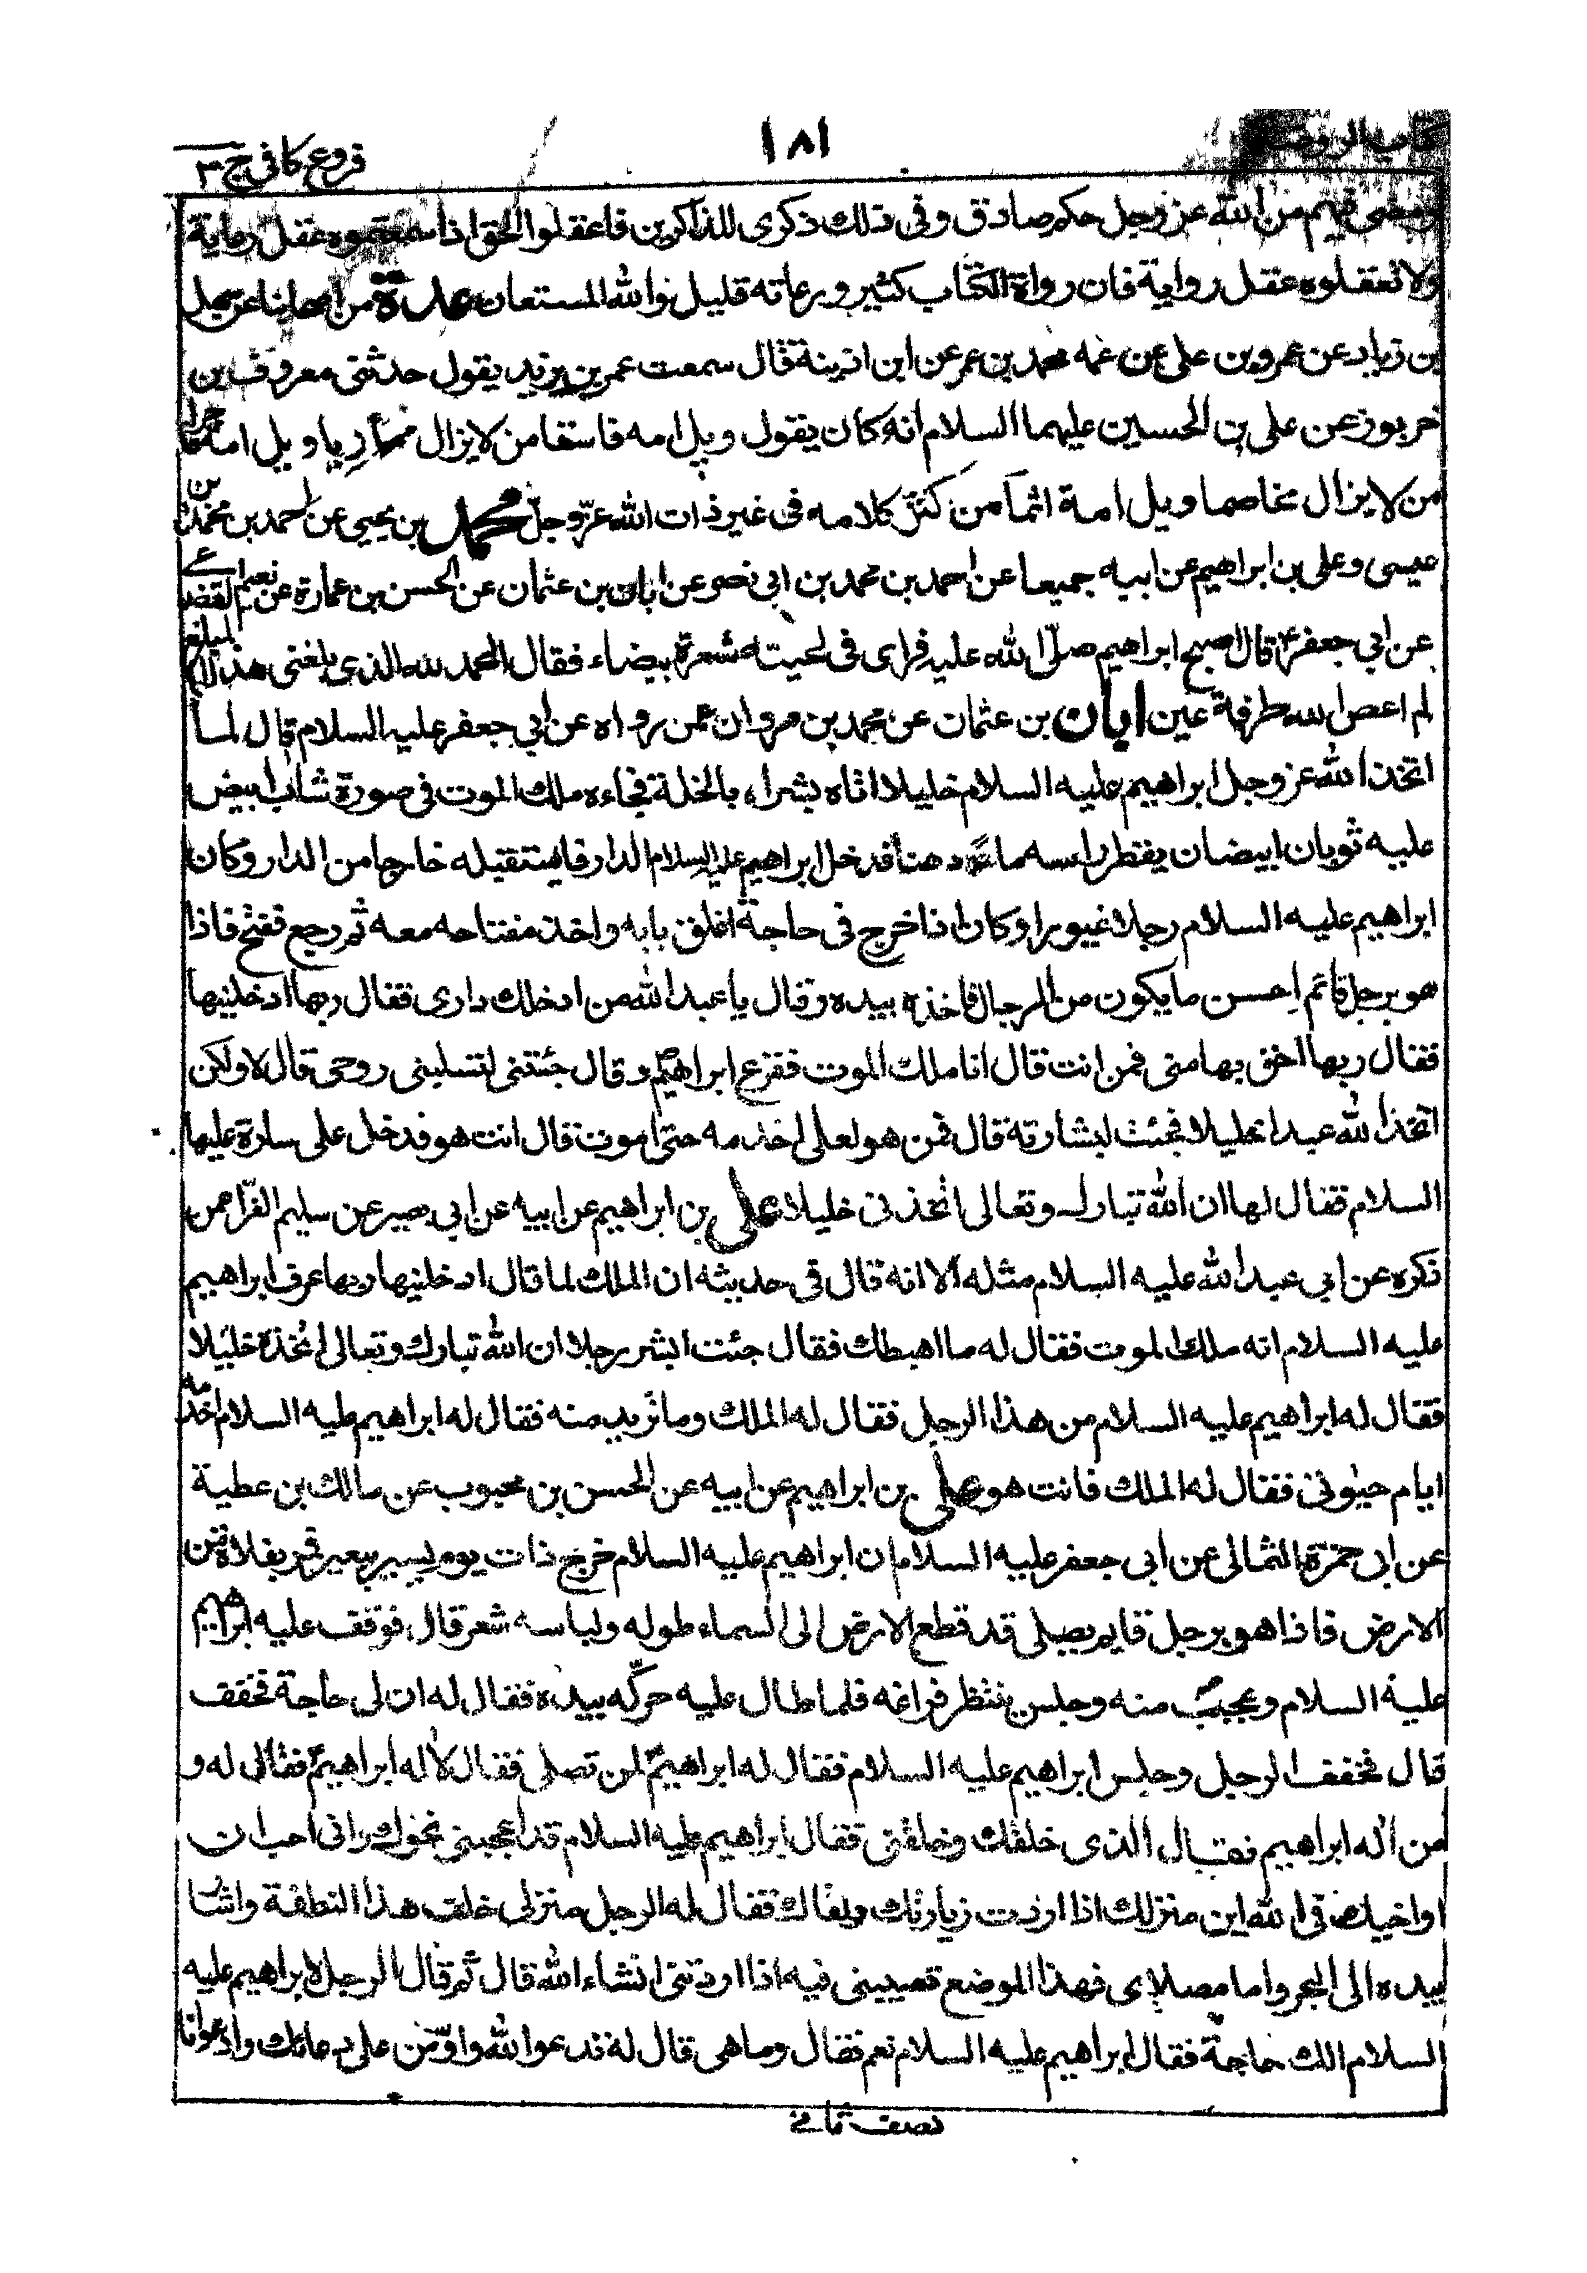 كتاب الروضة
١٨١
فروع كافي ج ٣
ومضى فيهم من الله عز وجل حكم صادق وفي ذلك ذكرى للذاكرين فاعقلوا الحق اذا سمعتموه عقل رعاية
ولا تعقلوه عقل رواية فان رواة الكتاب كثير ورعاته قليل والله المستعان عدة من اصحابنا عن سهل
بن زياد عن عمرو بن علي عن عمه محمد بن عمر عن ابن اذينة قال سمعت عمر بن يزيد يقول حدثني معروف بن
خربوز عن علي بن الحسين عليهما السلام انه كان يقول ويل امه فاسقا من لا يزال مماريا ويل امه فاجرا
من لا يزال مخاصما ويل امه اثما من كثر كلامه في غير ذات الله عز وجل محمد بن يحيى عن احمد بن محمد بن
عيسى وعلي بن ابراهيم عن ابيه جميعا عن احمد بن محمد بن ابي نصر عن ابان بن عثمان عن الحسن بن عمارة عن نعيم القضاعي
عن ابي جعفر ع قال اصبح ابراهيم صلى الله عليه فراى في لحيته شعرة بيضاء فقال الحمد لله الذي بلغني هذا المبلغ
لم اعص الله طرفة عين ابان بن عثمان عن محمد بن مروان عمن رواه عن ابي جعفر عليه السلام قال لما
اتخذ الله عز وجل ابراهيم عليه السلام خليلا اتاه بشراه بالخلة فجاءه ملك الموت في صورة شاب ابيض
عليه ثوبان ابيضان يقطر راسه ماء ودهنا فدخل ابراهيم عليه السلام الدار فاستقبله خارجا من الدار وكان
ابراهيم عليه السلام رجلا غيورا وكان اذا خرج في حاجة اغلق بابه واخذ مفتاحه معه ثم رجع ففتح فاذا
هو برجل قائم احسن ما يكون من الرجال فاخذه بيده وقال يا عبد الله من ادخلك داري فقال ربها ادخلنيها
فقال ربها احق بها مني فمن انت قال انا ملك الموت ففزع ابراهيم ع وقال جئتني لتسلبني روحي قال لا ولكن
اتخذ الله عبدا خليلا فجئت لبشارته قال فمن هو لعلي اخدمه حتى اموت قال انت هو فدخل على سارة عليها
السلام فقال لها ان الله تبارك وتعالى اتخذني خليلا علي بن ابراهيم عن ابيه عن ابي عمير عن سليم الفرا عمن
ذكره عن ابي عبد الله عليه السلام مثله الا انه قال في حديثه ان الملك لما قال ادخلنيها ربها عرف ابراهيم
عليه السلام انه ملك الموت فقال له ما اهبطك فقال جئت ابشر رجلا ان الله تبارك وتعالى اتخذه خليلا
فقال له ابراهيم عليه السلام من هذا الرجل فقال له الملك وما تريد منه فقال له ابراهيم عليه السلام اخدمه
ايام حيوتي فقال له الملك فانت هو علي بن ابراهيم عن ابيه عن الحسن بن محبوب عن مالك بن عطية
عن ابي حمزة الثمالي عن ابي جعفر عليه السلام ان ابراهيم عليه السلام خرج ذات يوم يسير ببعير فمر بفلاة من
الارض فاذا هو برجل قايم يصلي قد قطع الارض الى السماء طوله ولباسه شعر قال فوقف عليه ابراهيم
عليه السلام وعجب منه وجلس ينتظر فراغه فلما طال عليه حركه بيده فقال له ان لي حاجة فخفف
قال فخفف الرجل وجلس ابراهيم عليه السلام فقال له ابراهيم ع لمن تصلي فقال لاله ابراهيم ع فقال له و
من اله ابراهيم فقال الذي خلقك وخلقني فقال ابراهيم عليه السلام قد اعجبني نحوك واني احب ان
اواخيك في الله اين منزلك اذا اردت زيارتك ولقاك فقال له الرجل منزلي خلف هذا النطفة واشا
بيده الى البحر واما مصلاي فهذا الموضع تصيبني فيه اذا اردتني انشاء الله قال ثم قال الرجل لابراهيم عليه
السلام الك حاجة فقال ابراهيم عليه السلام نعم فقال وما هي قال له تدعوا الله واومن على دعائك وادعوا انا
نصف ثاني